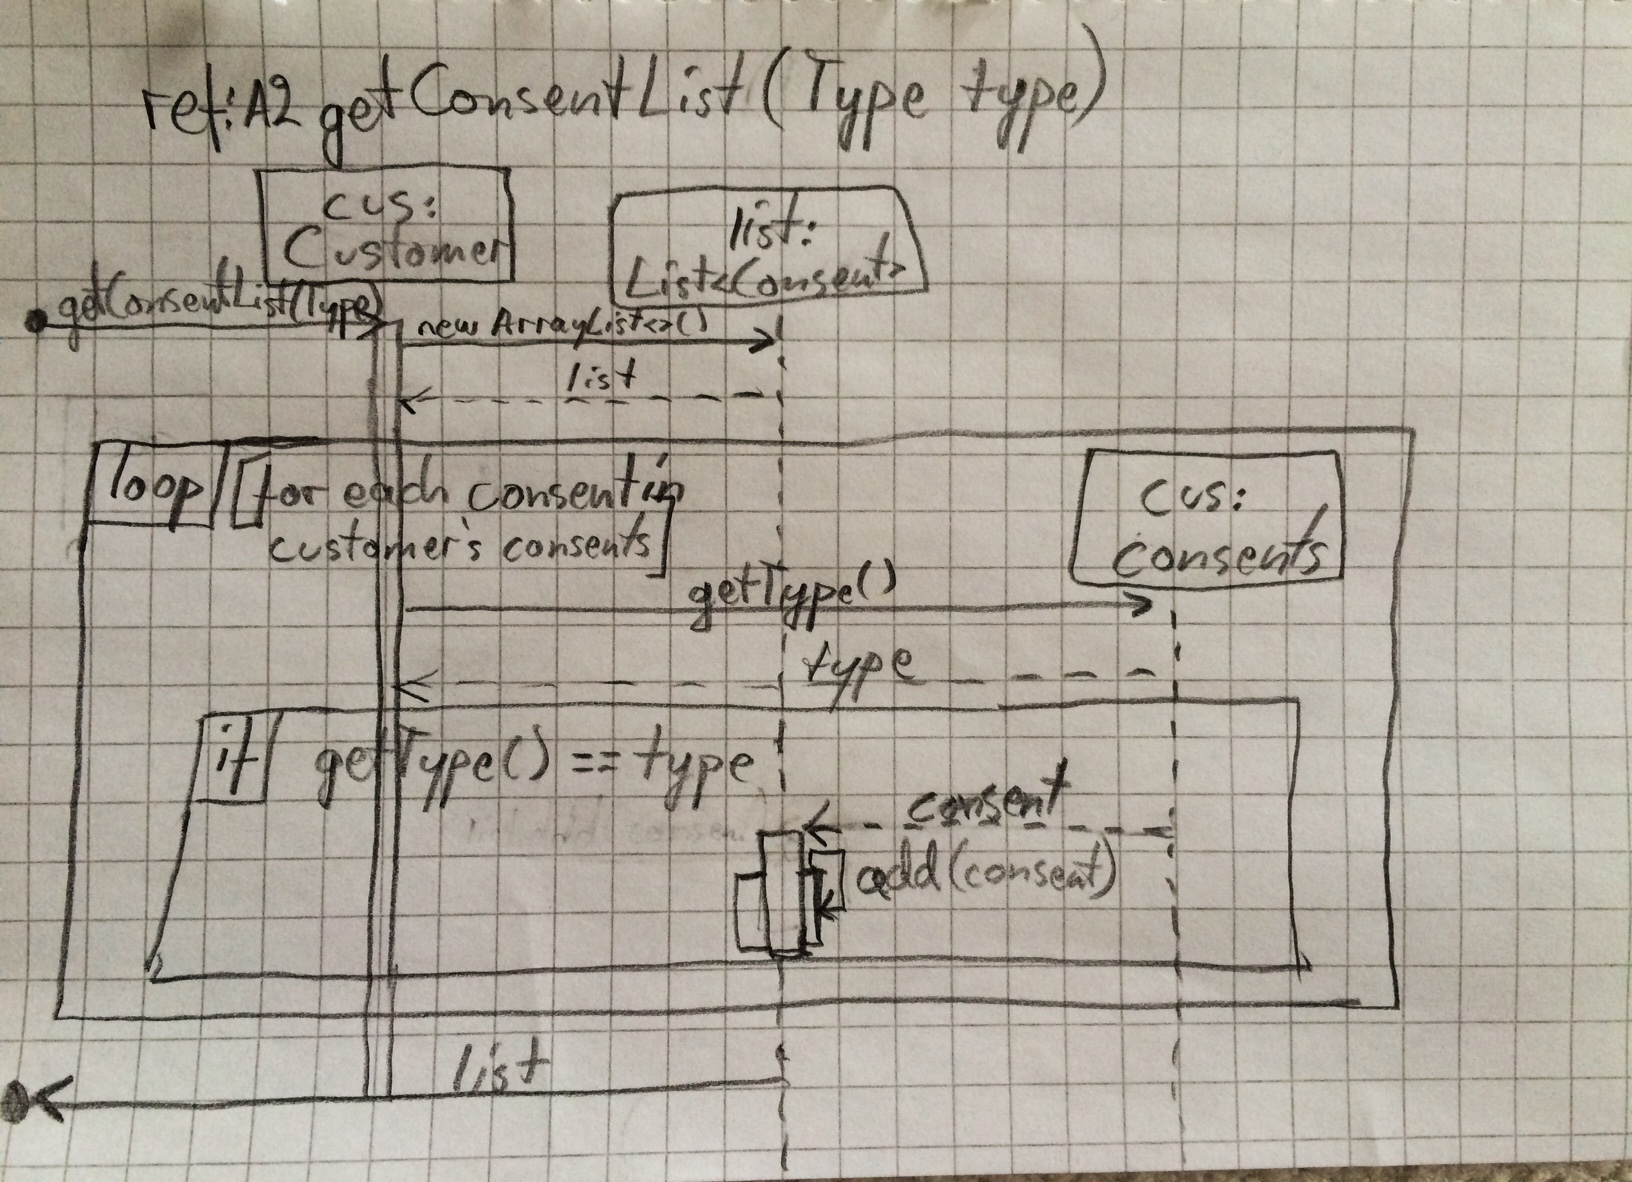 ref:A2 getConsentList(Type type)
cus:
Customer
list:
List<Consent>
getConsentList(Type)
new ArrayList<>()
list
loop
[for each consent in
customer's consents]
cus:
consents
getType()
type
if
getType() == type
consent
add(consent)
list